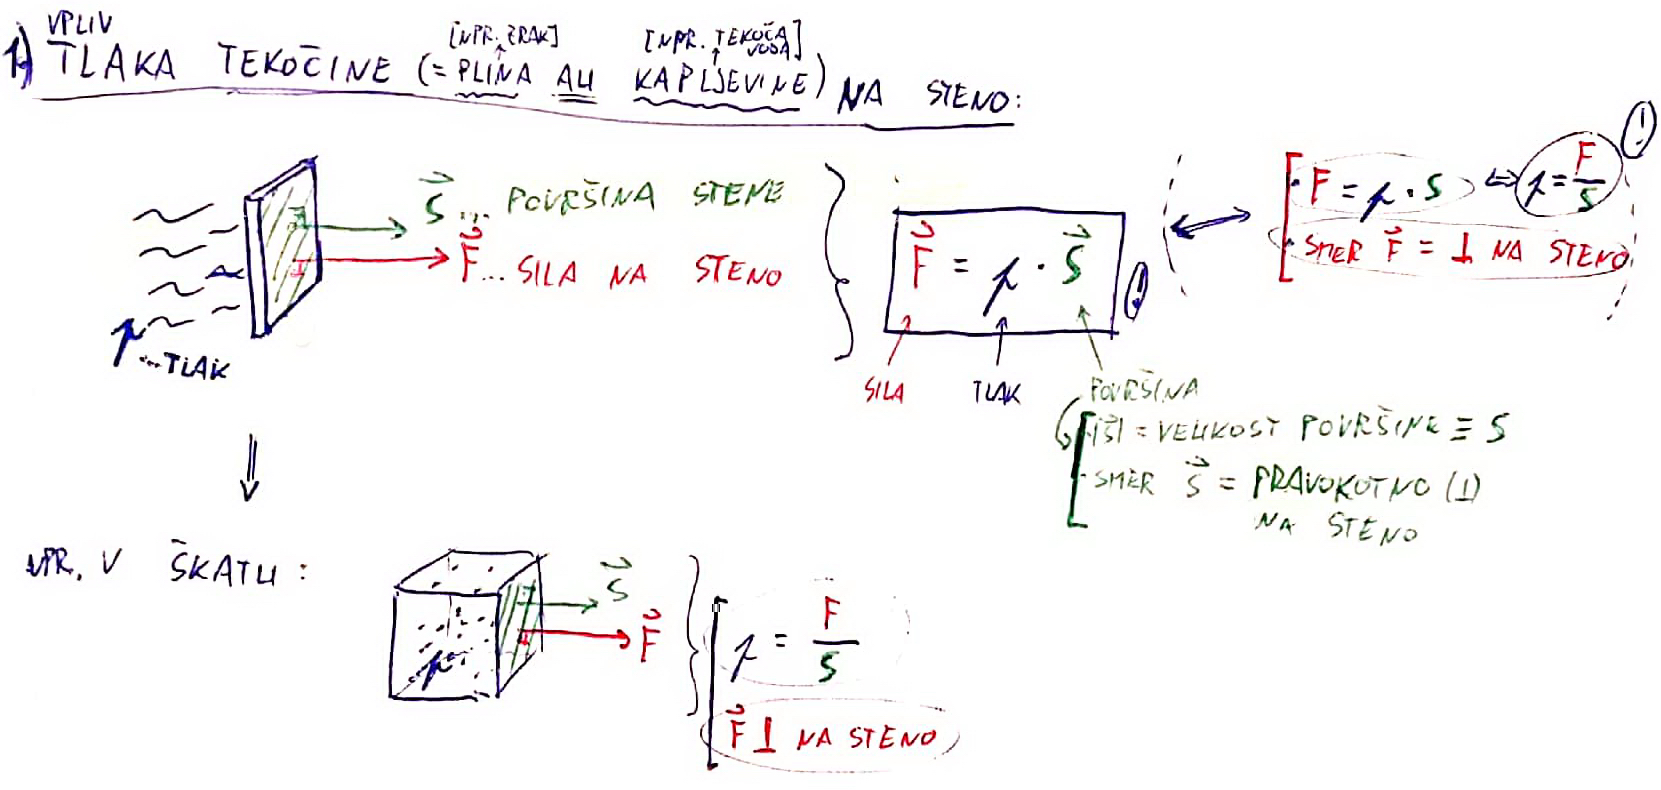 1) VPLIV TLAKA TEKOČINE (= PLINA ALI KAPLJEVINE) NA STENO:
[NPR. ZRAK] [NPR. TEKOČA VODA]
S⃗ ... POVRŠINA STENE
F⃗ ... SILA NA STENO
p ... TLAK
F⃗ = p · S⃗ !
SILA TLAK POVRŠINA
|S⃗| = VELIKOST POVRŠINE ≡ S
- SMER S⃗ = PRAVOKOTNO (⊥)
NA STENO
· F = p · S ⇔ p = F/S !
· SMER F⃗ = ⊥ NA STENO
NPR. V ŠKATLI:
p
S⃗
F⃗
p = F/S
F⃗ ⊥ NA STENO